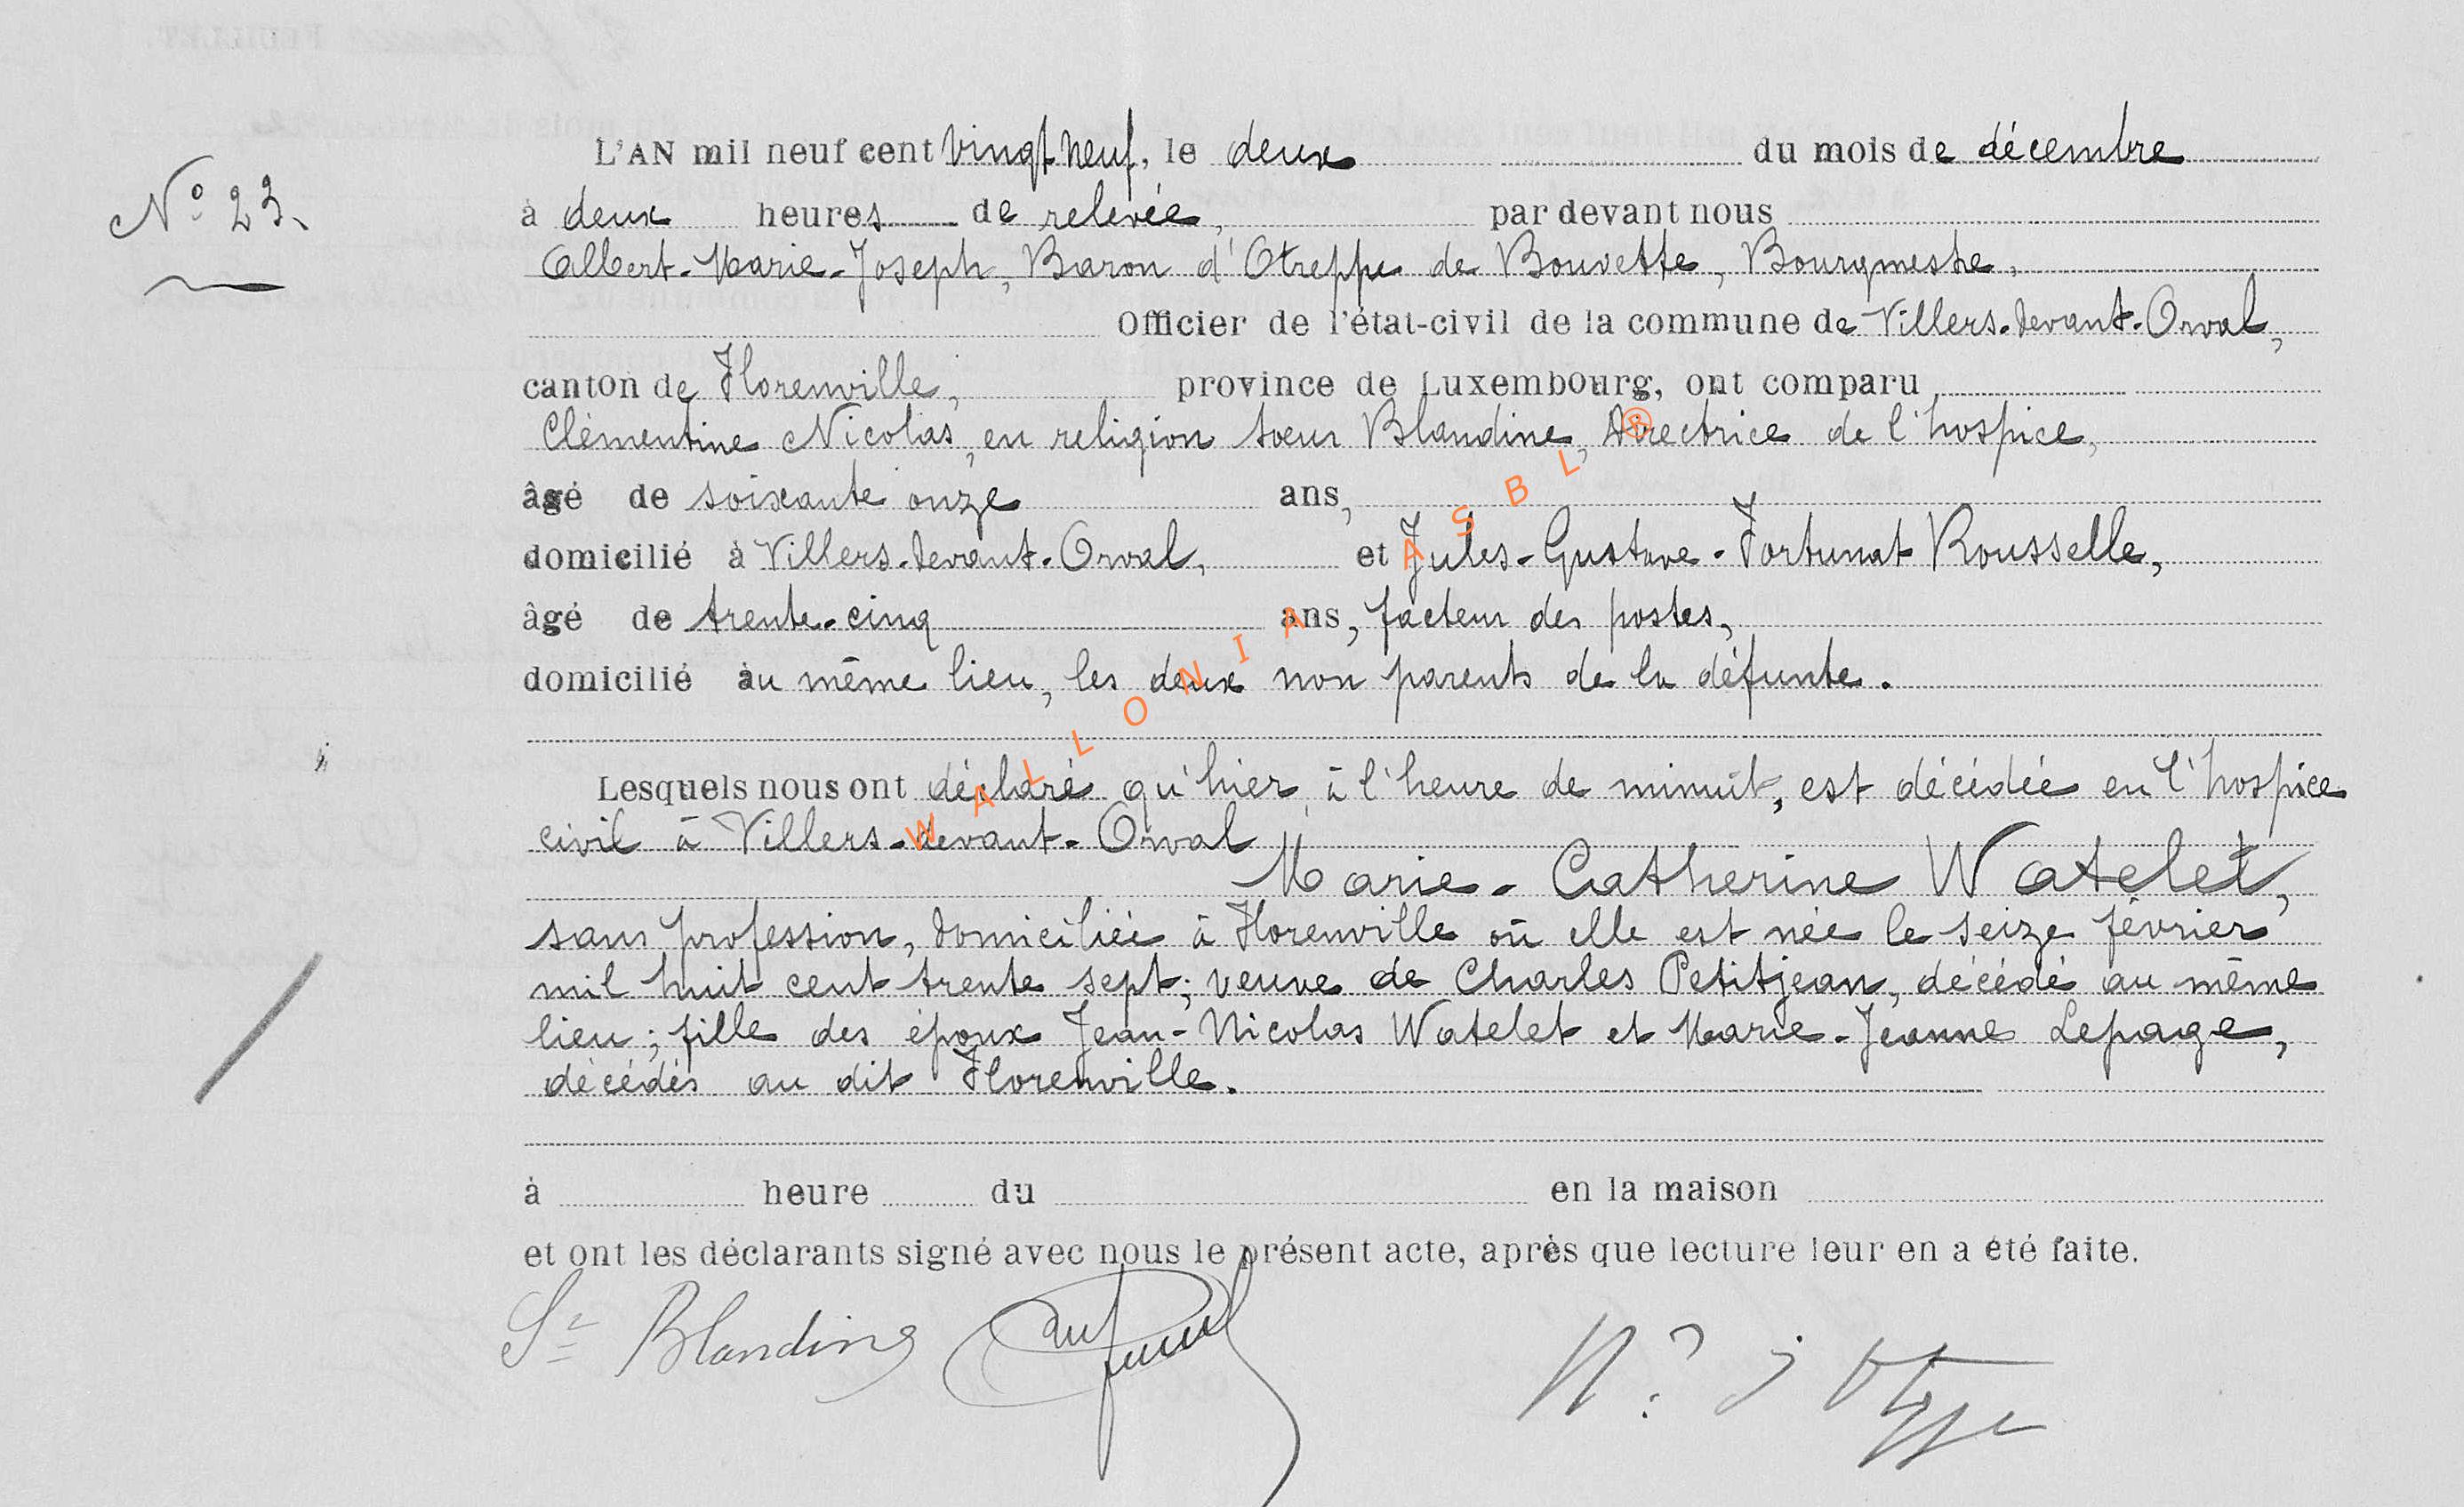 L'AN mil neuf cent vingt neuf, le deux du mois de décembre
N° 23.
à deux heures de relevée, par devant nous
Albert-Marie-Joseph, Baron d'Otreppe de Bouvette, Bourgmestre,
Officier de l'état-civil de la commune de Villers-devant-Orval,
canton de Florenville, province de Luxembourg, ont comparu
Clémentine Nicolas, en religion sœur Blandine, Directrice de l'hospice,
âgé de soixante onze ans,
domicilié à Villers-devant-Orval, et Jules-Gustave-Fortunat Rousselle,
âgé de trente-cinq ans, facteur des postes,
domicilié au même lieu, les deux non parents de la défunte.
Lesquels nous ont déclaré qu'hier, à l'heure de minuit, est décédée en l'hospice
civil à Villers-devant-Orval
Marie-Catherine Watelet,
sans profession, domiciliée à Florenville où elle est née le seize février
mil huit cent trente sept; veuve de Charles Petitjean, décédé au même
lieu; fille des époux Jean-Nicolas Watelet et Marie-Jeanne Lepage,
décédés au dit Florenville.
à heure du en la maison
et ont les déclarants signé avec nous le présent acte, après que lecture leur en a été faite.
Sr Blandine
WALLONIA ASBL ®